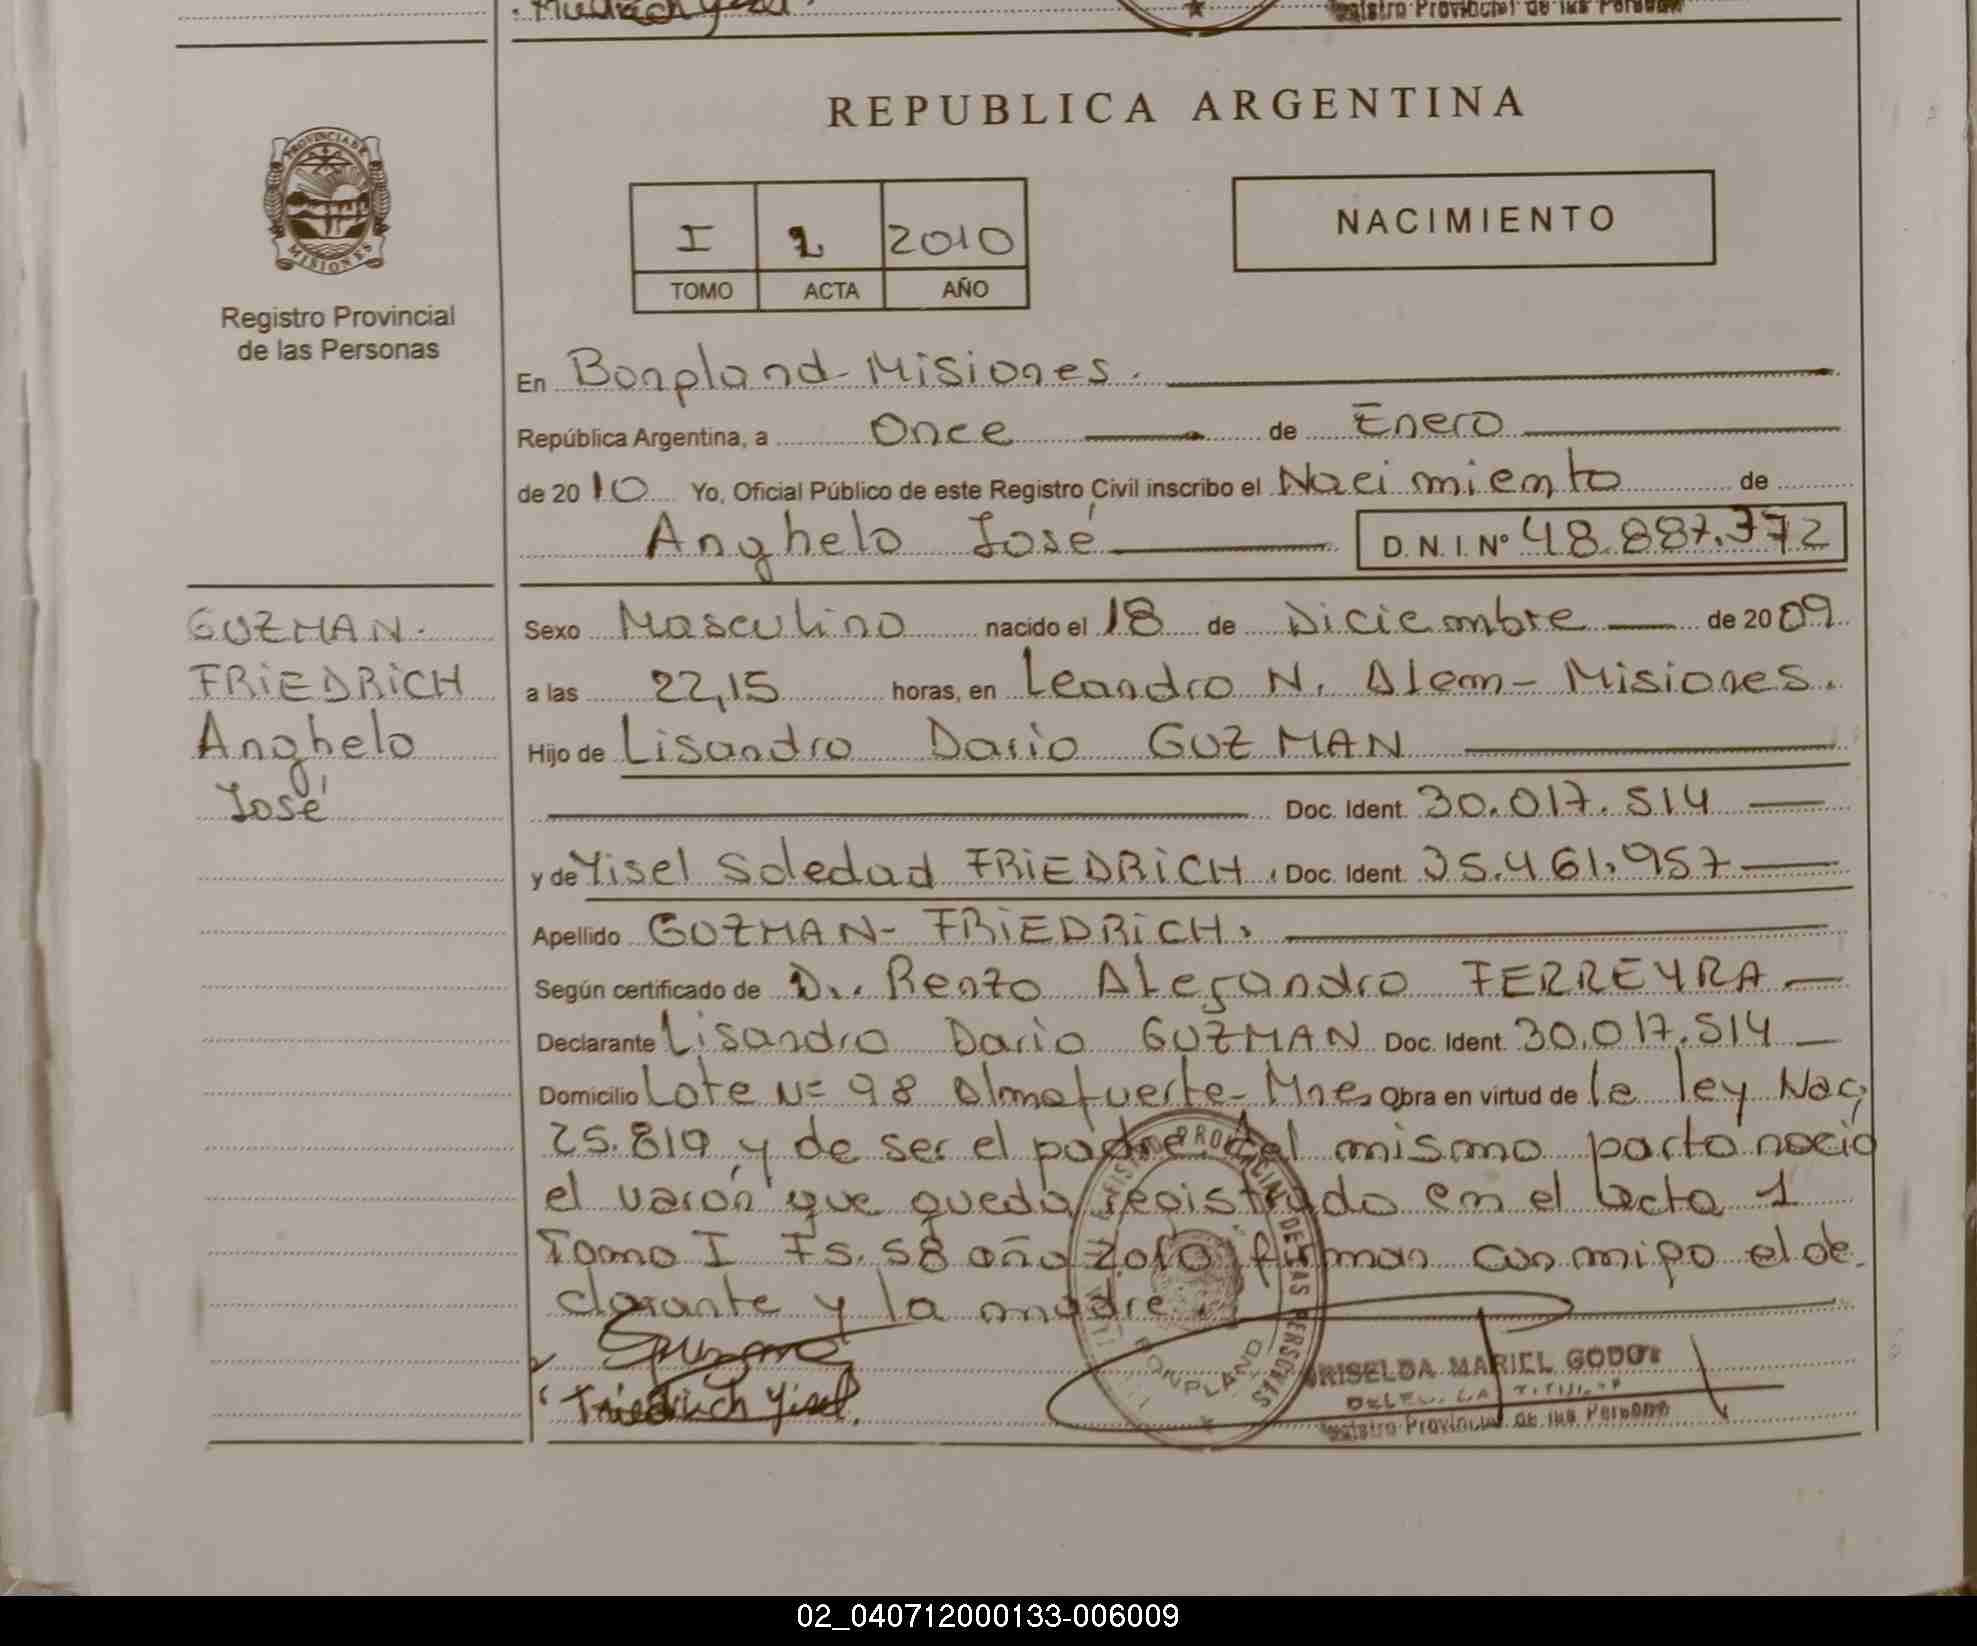 Registro Provincial de las Personas
REPUBLICA ARGENTINA
PROVINCIA DE
MISIONES
Registro Provincial
de las Personas
I 2 2010
TOMO ACTA AÑO
NACIMIENTO
En Bonpland - Misiones.
República Argentina, a Once de Enero
de 2010 Yo, Oficial Público de este Registro Civil inscribo el Nacimiento de
Anghelo José D. N. I. Nº 48.887.372
GUZMAN.
FRIEDRICH
Anghelo
José
Sexo Masculino nacido el 18 de Diciembre de 2009
a las 22,15 horas, en Leandro N. Alem - Misiones.
Hijo de Lisandro Dario GUZMAN
Doc. Ident. 30.017.514
y de Yisel Soledad FRIEDRICH, Doc. Ident. 35.461.957
Apellido GUZMAN - FRIEDRICH.
Según certificado de Dr. Renzo Alejandro FERREYRA
Declarante Lisandro Dario GUZMAN Doc. Ident. 30.017.514
Domicilio Lote Nº 98 Almafuerte - Mnes Obra en virtud de la ley Nac,
25.819 y de ser el padre, del mismo parto nació
el varón que queda registrado en el acta 1
Tomo I Fs. 58 año 2010, firman conmigo el de
clarante y la madre.
Friedrich Yisel.
REGISTRO PROVINCIAL DE LAS PERSONAS
BONPLAND
GRISELDA MARIEL GODOY
DELEGADA TITULAR
Registro Provincial de las Personas
02_040712000133-006009